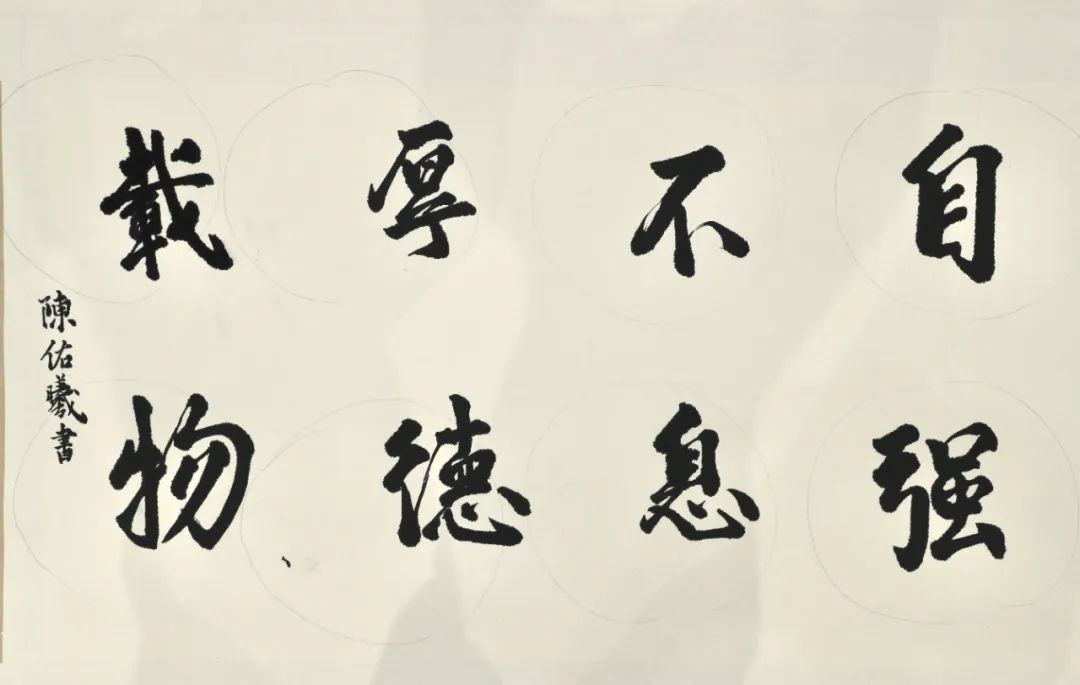 自强
不息
厚德
載物
陳佑曦書